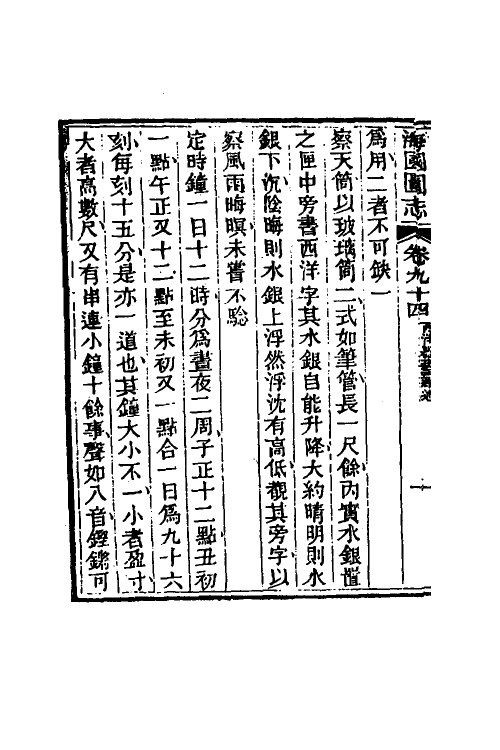 海國圖志 卷九十四
爲用二者不可缺一
察天筒以玻璃筒二式如筆管長一尺餘內實水銀懂
之匣中旁書西洋字其水銀自能升降大約晴明則水
銀下沉陰晦則水銀上浮然浮沈有高低觀其旁字以
察風雨晦暝未嘗不驗
定時鐘一日十二時分爲晝夜二周子正十二點丑初
一點午正又十二點至未初又一點合一日爲九十六
刻每刻十五分是亦一道也其鐘大小不一小者盈寸
大者高數尺又有串連小鐘十餘事聲如八音鏗鏘可